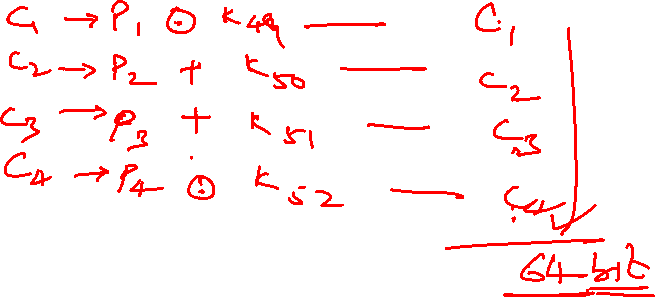 C1 → P1 ⊙ K49 — C1
C2 → P2 + K50 — C2
C3 → P3 + K51 — C3
C4 → P4 ⊙ K52 — C4
64-bit